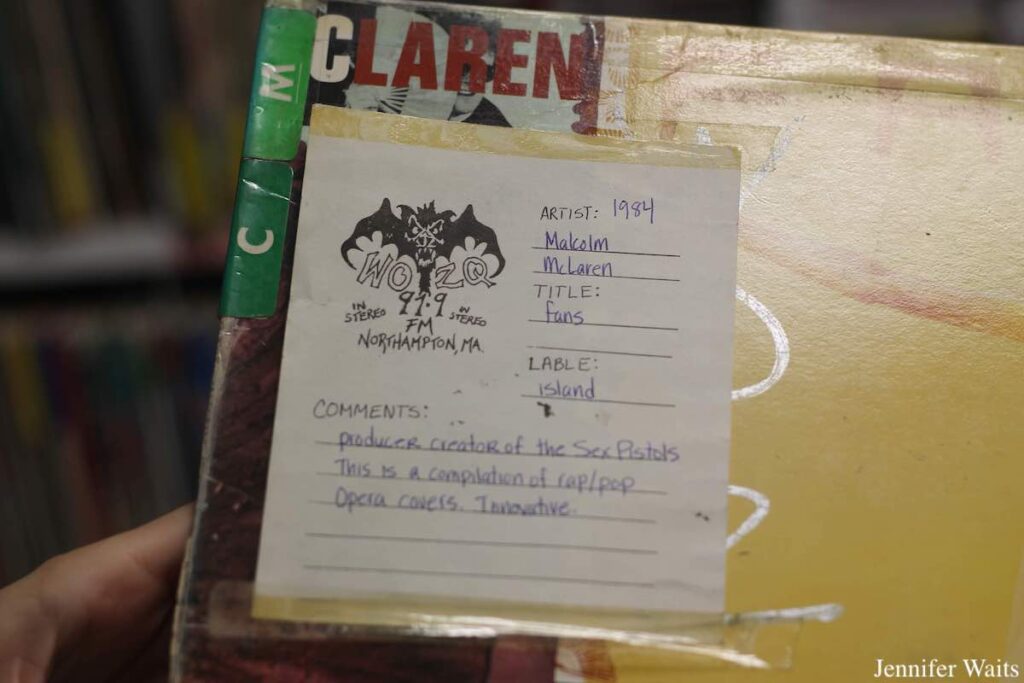 McLAREN
M
C
WOZQ
91.9
IN STEREO
IN STEREO
FM
NORTHAMPTON, MA.
ARTIST: 1984
Malcolm
McLaren
TITLE:
Fans
LABLE:
island
COMMENTS:
producer creator of the Sex Pistols
This is a compilation of rap/pop
Opera covers. Innovative.
Jennifer Waits